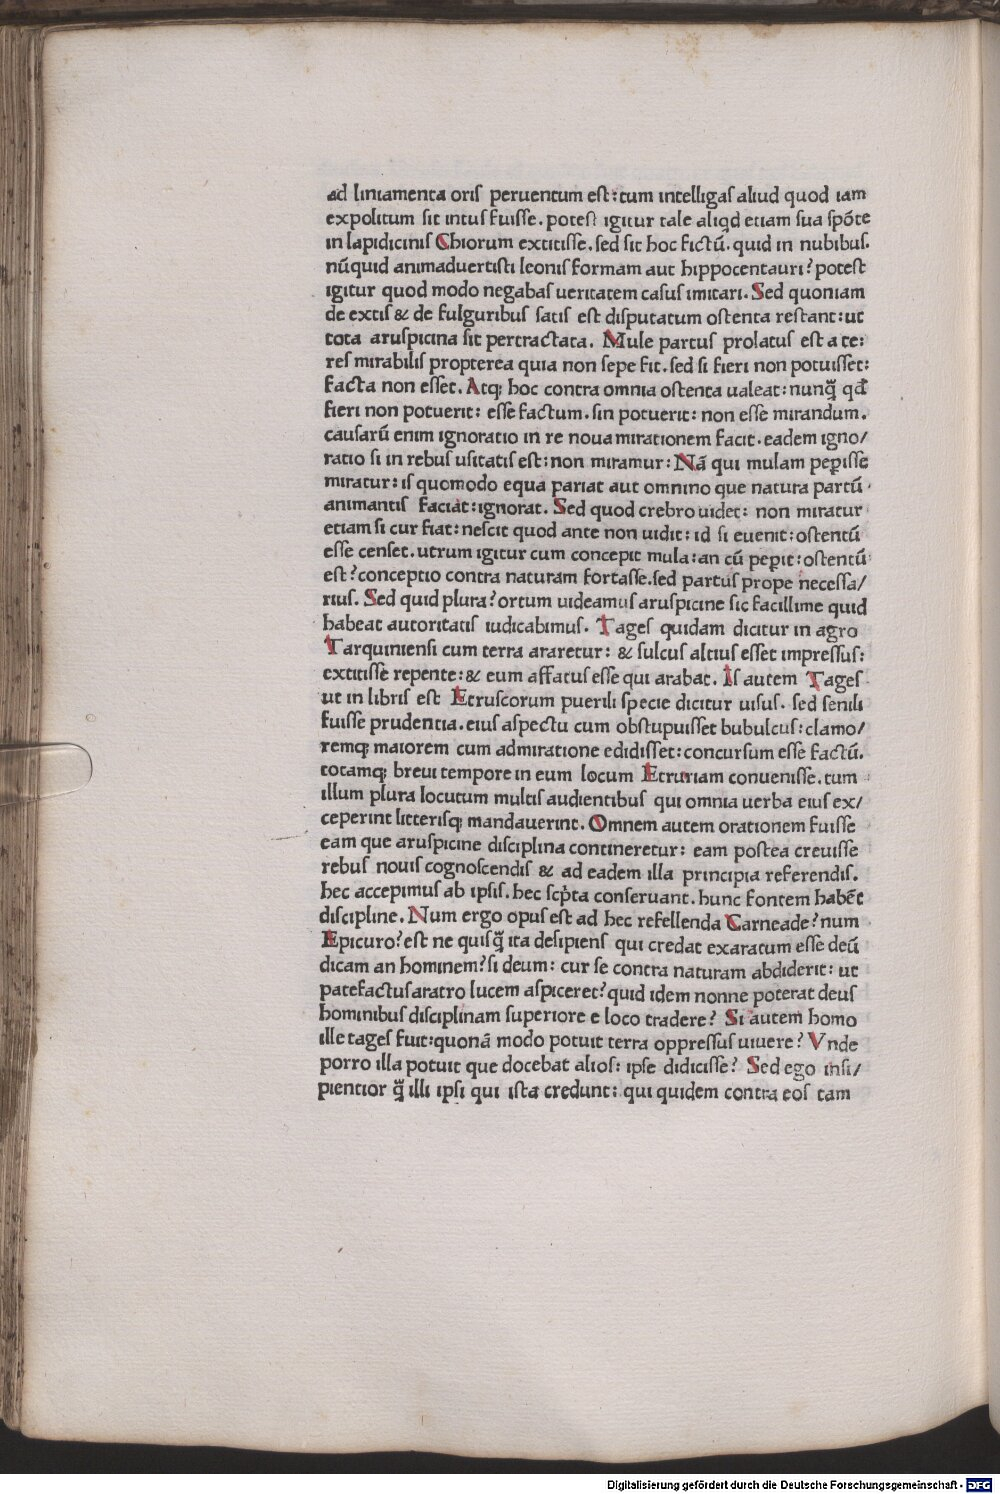 ad liniamenta oris peruentum est: tum intelligas aliud quod iam
expolitum sit intus fuisse. potest igitur tale aliqd etiam sua spōte
in lapidicinis Chiorum extitisse. sed sit hoc fictū. quid in nubibus.
nūquid animaduertisti leonis formam aut hippocentauri? potest
igitur quod modo negabas ueritatem casus imitari. Sed quoniam
de extis & de fulguribus satis est disputatum ostenta restant: ut
tota aruspicina sit pertractata. Mule partus prolatus est a te:
res mirabilis propterea quia non sepe fit. sed si fieri non potuisset:
facta non esset. Atq; hoc contra omnia ostenta ualeat: nunq̄ qđ
fieri non potuerit: esse factum. sin potuerit: non esse mirandum.
causarū enim ignoratio in re noua mirationem facit. eadem igno/
ratio si in rebus usitatis est: non miramur: Nā qui mulam peꝑisse
miratur: is quomodo equa pariat aut omnino que natura partū
animantis faciat: ignorat. Sed quod crebro uidet: non miratur
etiam si cur fiat: nescit quod ante non uidit: id si euenit: ostentū
esse censet. utrum igitur cum concepit mula: an cū peꝑit: ostentū
est? conceptio contra naturam fortasse. sed partus prope necessa/
rius. Sed quid plura? ortum uideamus aruspicine sic facillime quid
habeat autoritatis iudicabimus. Tages quidam dicitur in agro
Tarquiniensi cum terra araretur: & sulcus altius esset impressus:
extitisse repente: & eum affatus esse qui arabat. Is autem Tages
ut in libris est Etruscorum puerili specie dicitur uisus. sed senili
fuisse prudentia. eius aspectu cum obstupuisset bubulcus: clamo/
remq; maiorem cum admiratione edidisset: concursum esse factū.
totamq; breui tempore in eum locum Etruriam conuenisse. tum
illum plura locutum multis audientibus qui omnia uerba eius ex/
ceperint litterisq; mandauerint. Omnem autem orationem fuisse
eam que aruspicine disciplina contineretur: eam postea creuisse
rebus nouis cognoscendis & ad eadem illa principia referendis.
hec accepimus ab ipsis. hec scp̄ta conseruant. hunc fontem habēt
discipline. Num ergo opus est ad hec refellenda Carneade? num
Epicuro? est ne quisq̄ ita desipiens qui credat exaratum esse deū
dicam an hominem? si deum: cur se contra naturam abdiderit: ut
patefactus aratro lucem aspiceret? quid idem nonne poterat deus
hominibus disciplinam superiore e loco tradere? Si autem homo
ille tages fuit: quonā modo potuit terra oppressus uiuere? Vnde
porro illa potuit que docebat alios: ipse didicisse? Sed ego insi/
pientior q̄ illi ipsi qui ista credunt: qui quidem contra eos tam
Digitalisierung gefördert durch die Deutsche Forschungsgemeinschaft - DFG